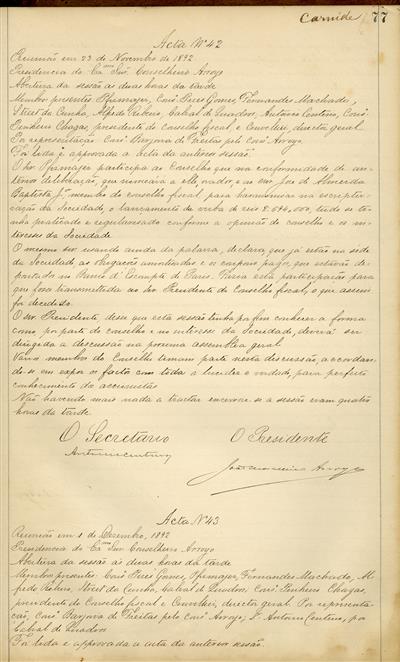 Carnide 77
Acta Nº 42
Reunião em 23 de Novembro de 1892
Presidencia do Exmo Snr. Conselheiro Arroyo
Abertura da sessão ás duas horas da tarde
Membros presentes: Consº Pires Gomes, Fernandes Machado,
Street da Cunha, Alfredo Ribeiro, Cabral de Quadros, Antonio Centeno, Consº
Pinheiro Chagas, presidente do conselho fiscal, e director geral.
Por representação Consº de Freitas pelo Consº Arroyo.
Foi lida e approvada a acta da anterior sessão.
O Snr. participa ao Conselho que na conformidade de an-
terior deliberação, que nomeara a elle, orador, e ao snr. José de Almeida
Baptista, do conselho fiscal, para harmonisar na escriptu-
ração da Sociedade, o lançamento da verba de reis tudo se ta-
nha praticado e regularisado conforme a opinião do conselho e os in-
teresses da Sociedade
O mesmo snr. usando ainda da palavra, declara que já estão na séde
da Sociedade as obrigações amortisadas e os coupons pagos, que estavam de-
positados no Banco d'Escompte de Paris. Faria esta participação para
que fosse transmettida ao snr. Presidente do Conselho fiscal, o que assim
foi decedido.
O snr. Presidente, disse que esta sessão tinha por fim conhecer a forma
como, por parte do conselho e no interesse da Sociedade, deverá ser
dirigida a discussão na proxima assembléa geral
Varios membros do Conselho tomam parte nesta discussão, accordan-
do-se em expôr os factos com toda a lucidez e verdade, para perfeito
conhecimento dos accionistas
Não havendo mais nada a tractar encerrou-se a sessão eram quatro
horas da tarde.
O Secretario O Presidente
Antonio Centeno
João Arroyo
Acta Nº 43
Reunião em 1 de Dezembro, 1892
Presidencia do Exmo Snr Conselheiro Arroyo
Abertura da sessão ás duas horas da tarde
Membros presentes: Consº Pires Gomes, Fernandes Machado, Al-
fredo Ribeiro, Street da Cunha, Cabral de Quadros, Consº Pinheiro Chagas,
presidente do Conselho fiscal e director geral. Por representa-
ção, Consº de Freitas pelo Consº Arroyo, Dr Antonio Centeno, por
Cabral de Quadros
Foi lida e approvada a acta da anterior sessão.